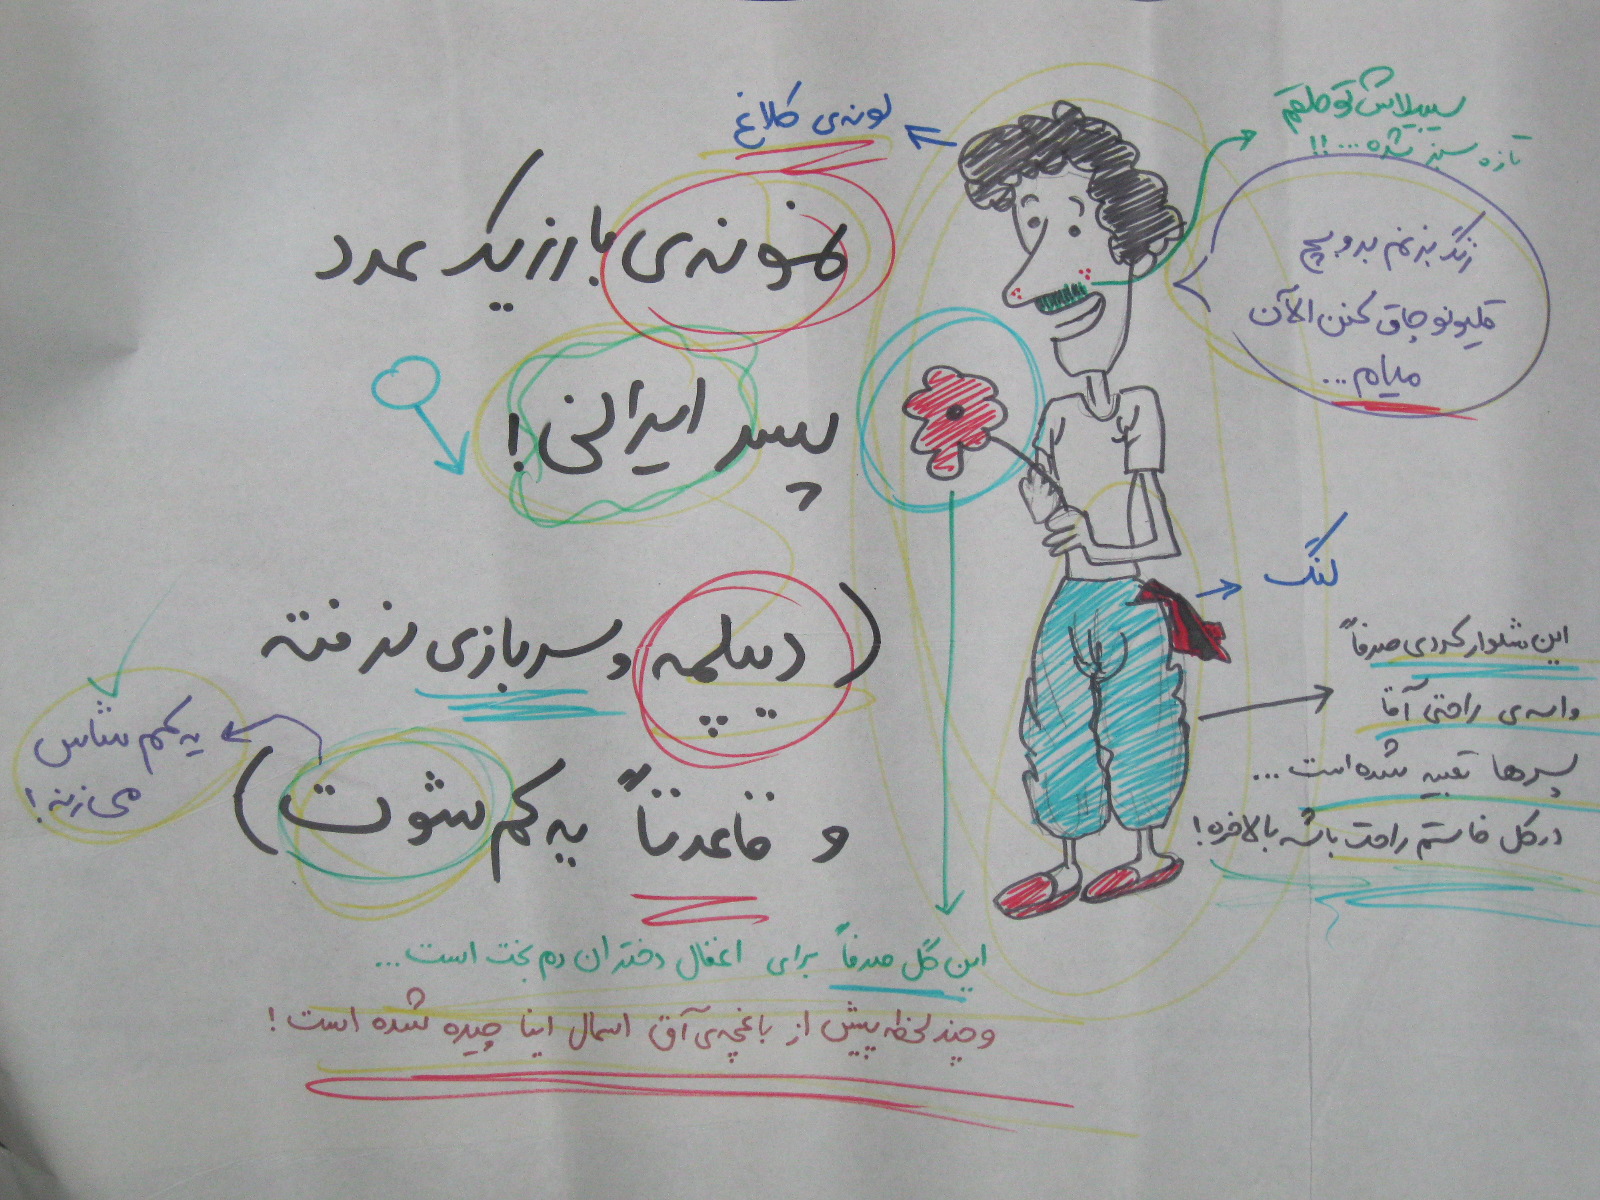 لونه‌ی کلاغ
سیبیلاش تو حلقم
تازه سبز شده...!!
زنگ بزنم بروبچ
قلیونو چاق کنن الآن
میام...
نمونه‌ی بارز یک عدد
پسر ایرانی!
(دیپلمه و سربازی نرفته
و قاعدتاً یه کم شوت)
یه کم شاس
می‌زنه!
لنگ
این شلوار کردی صرفاً
واسه‌ی راحتی آقا
پسرها تعبیه شده است...
در کل خاستم راحت باشه بالاخره!
این گل صرفاً برای اغفال دختران دم بخت است...
و چند لحظه پیش از باغچه‌ی آق اسمال اینا چیده شده است!